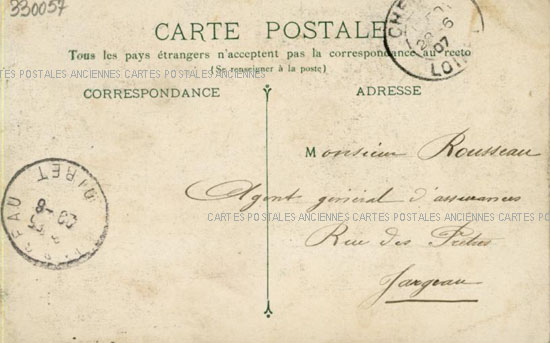 330057
CARTE POSTALE
Tous les pays étrangers n'acceptent pas la correspondance au recto
(Se renseigner à la poste)
CARTES POSTALES ANCIENNES CARTES POSTALES ANCIENNES
CORRESPONDANCE
ADRESSE
CHE
6
07
LOI
Monsieur Rousseau
Agent général d'assurances
CARTES POSTALES ANCIENNES CARTES POSTALES ANCIENNES CARTES POSTALES
Rue des Prêtres
Jargeau
EAU
LOIRET